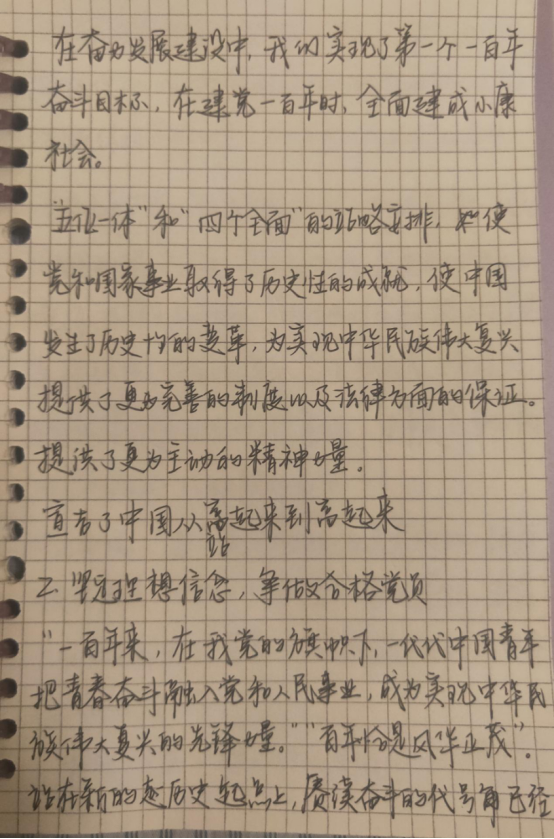 在奋力发展建设中,我们实现了第一个一百年
奋斗目标,在建党一百年时,全面建成小康
社会。
"五位一体"和"四个全面"的战略安排,使
党和国家事业取得了历史性的成就,使中国
发生了历史性的变革,为实现中华民族伟大复兴
提供了更为完善的制度以及法律方面的保证。
提供了更为主动的精神力量。
宣告了中国从站起来到富起来
2. 坚定理想信念,争做合格党员
"一百年来,在我党的旗帜下,一代代中国青年
把青春奋斗融入党和人民事业,成为实现中华民
族伟大复兴的先锋力量。""百年恰是风华正茂".
站在新的历史起点上,赓续奋斗的代号角已经